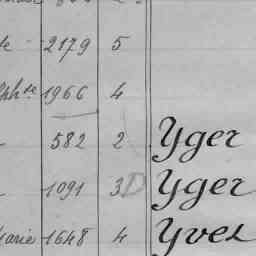 2179 5
1966 4
582 2 Yger
1091 3 D Yger
Marie 1648 4 Yves